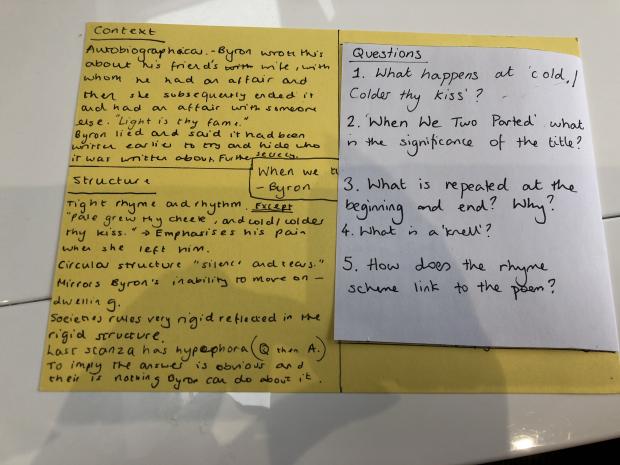 Context
Autobiographical - Byron wrote this
about his friend's wife, with
whom he had an affair and
then she subsequently ended it
and had an affair with someone
else. "Light is thy fame."
Byron lied and said it had been
written earlier to try and hide who
it was written about. Further secrecy.
When we t
- Byron
Structure
Tight rhyme and rhythm. Except
"pale grew thy cheek, and cold/colder
thy kiss." → Emphasises his pain
when she left him.
Circular structure "silence and tears."
Mirrors Byron's inability to move on -
dwelling.
Societies rules very rigid reflected in the
rigid structure.
Last stanza has hypophora (Q then A.)
To imply the answer is obvious and
their is nothing Byron can do about it.
Questions
1. What happens at 'cold,/
Colder thy kiss'?
2. 'When We Two Parted' what
is the significance of the title?
3. What is repeated at the
beginning and end? Why?
4. What is a 'knell'?
5. How does the rhyme
scheme link to the poem?